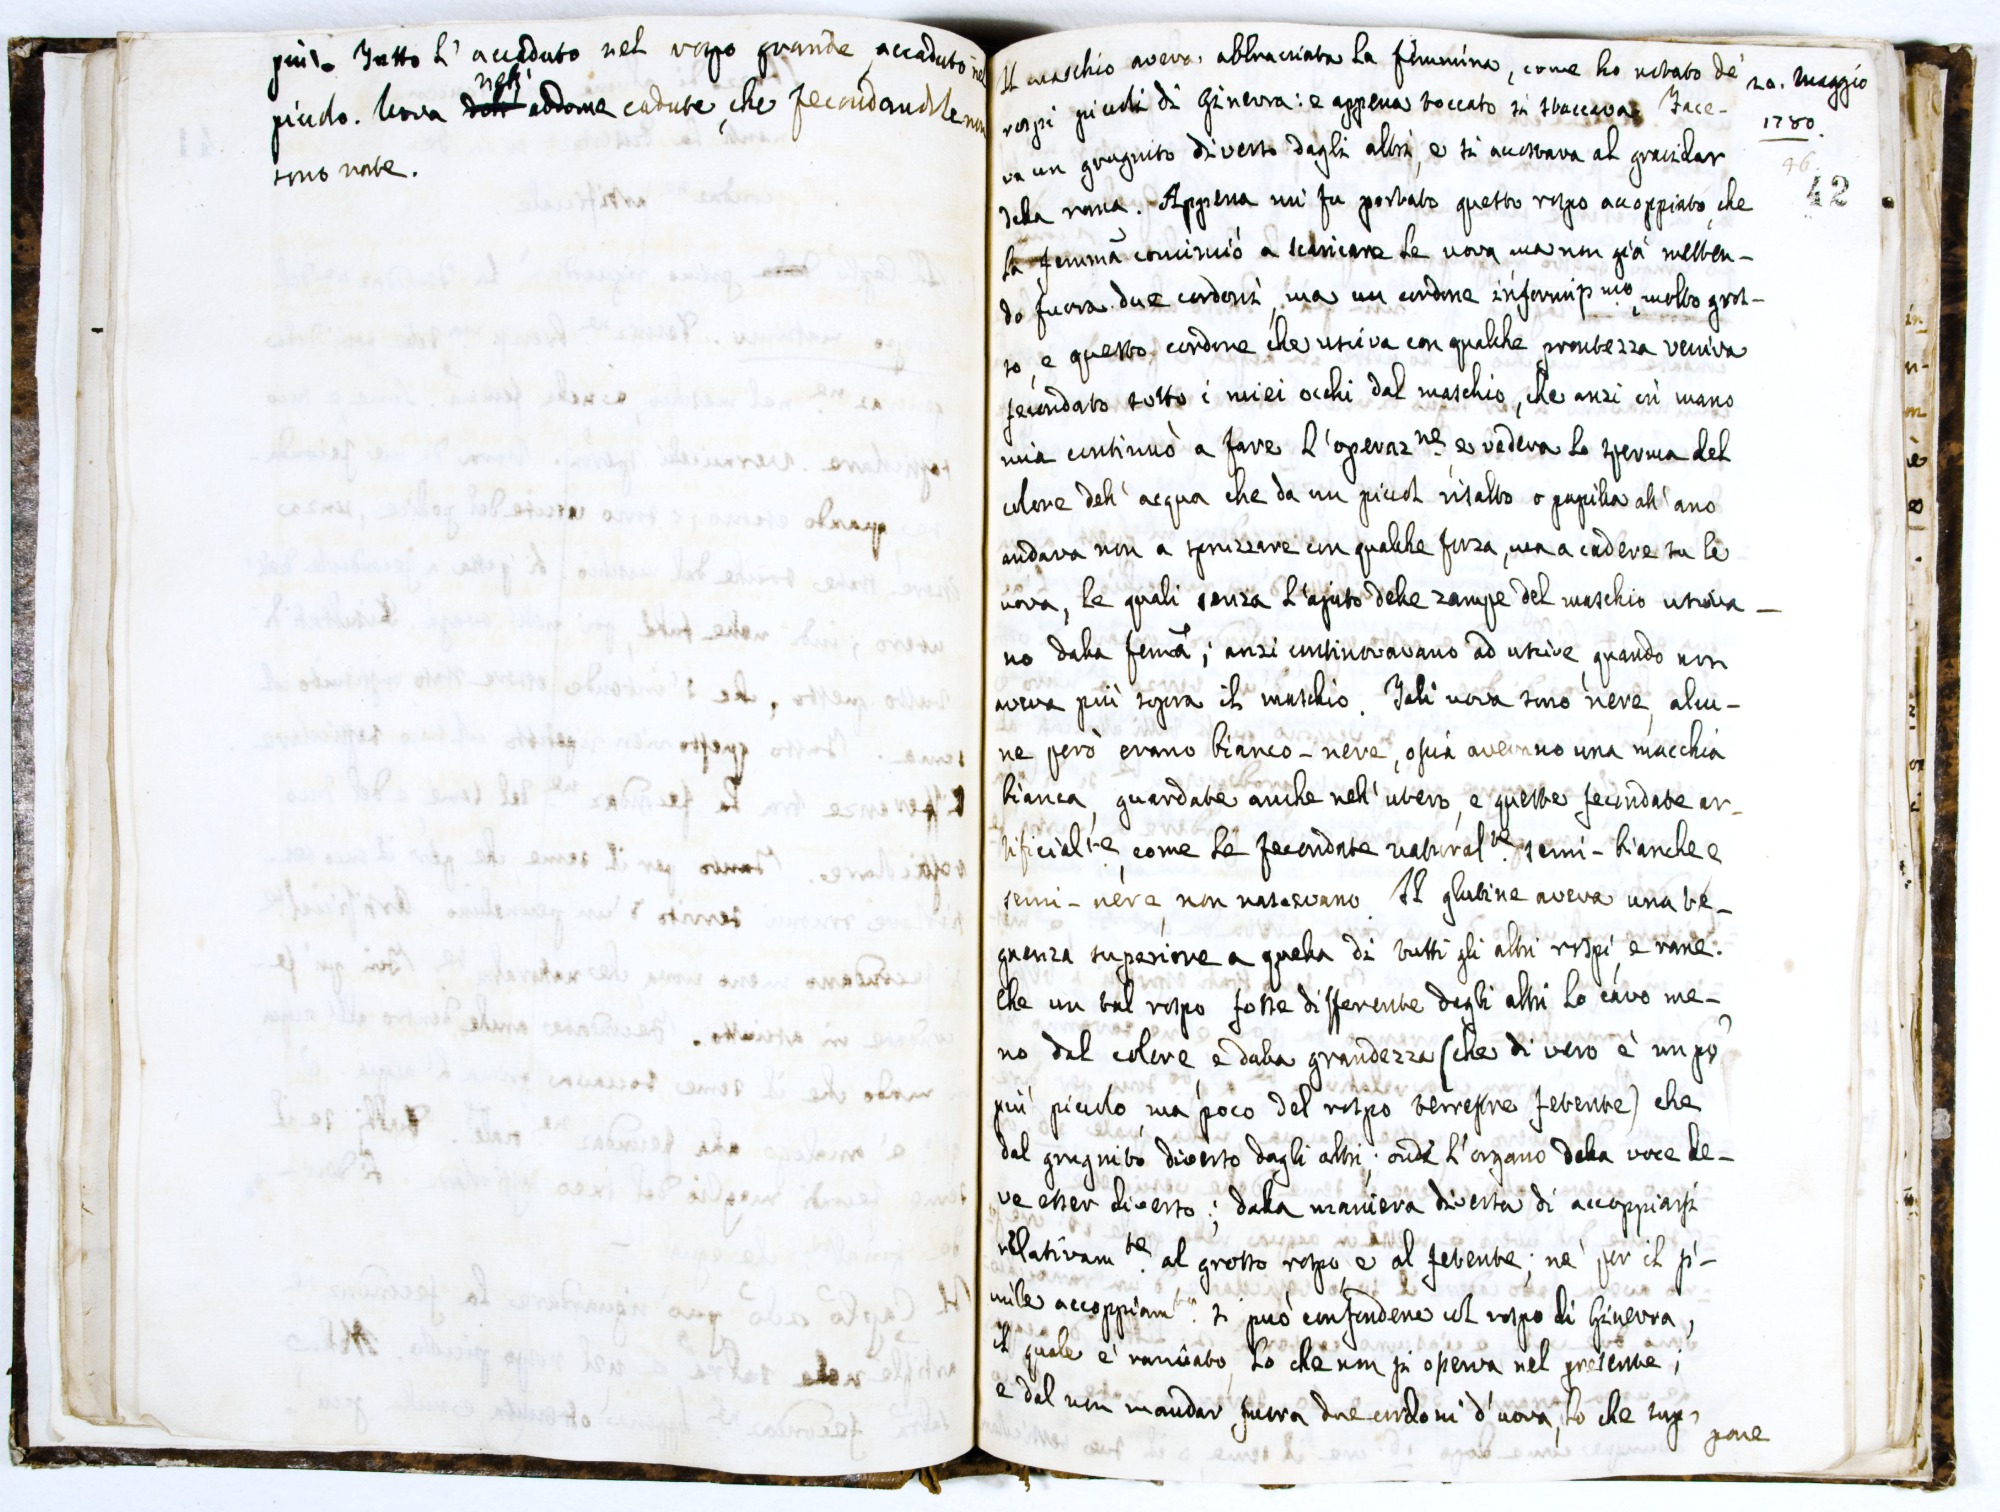 più. Tutto l'accaduto nel rospo grande, accaduto nel
piccolo. Uova dell' nell' addome cadute, che fecondandole non
sono nate.
Il maschio aveva abbracciata la femmina, come ho notato de'
rospi piccoli di Ginevra: e appena toccato si staccava. Face-
va un grugnito diverso dagli altri, e si accostava al gracidar
della rana. Appena mi fu portato questo rospo accoppiato, che
la femmã cominciò a scaricare le uova ma non già metten-
do fuora due cordoni, ma un cordone informip.mo, molto gros-
so, e questo cordone che usciva con qualche prontezza veniva
fecondato sotto i miei occhi dal maschio, che anzi in mano
mia continuò a fare l'operaz.ne e vedeva lo sperma del
colore dell' acqua che da un piccol risalto o papilla all' ano
andava non a spruzzare con qualche forza, ma a cadere su le
uova, le quali senza l'ajuto delle zampe del maschio usciva-
no dalla femã; anzi continovavano ad uscire quando non
aveva più sopra il maschio. Tali uova sono nere, alcu-
ne però erano bianco-nere, ossia avevano una macchia
bianca, guardate anche nell' utero, e queste fecondate ar-
tificial.te, come le fecondate natural.te semi-bianche e
semi-nere non nascevano. Il glutine aveva una te-
gnenza superiore a quella di tutti gli altri rospi, e rane.
Che un tal rospo fosse differente dagli altri lo cavo me-
no dal colore, e dalla grandezza (che di vero è un pò
più piccolo, ma poco del rospo terrestre fetente) che
dal grugnito diverso dagli altri; onde l'organo della voce de-
ve esser diverso; dalla maniera diversa di accoppiarsi
relativam.te al grosso rospo, e al fetente; nè per il si-
mile accoppiam.to si può confondere col rospo di Ginevra,
il quale è ranciato, lo che non si osserva nel presente;
e dal non mandar fuora due cordoni d'uova, lo che sup-
pone
20. Maggio
1780.
46
42